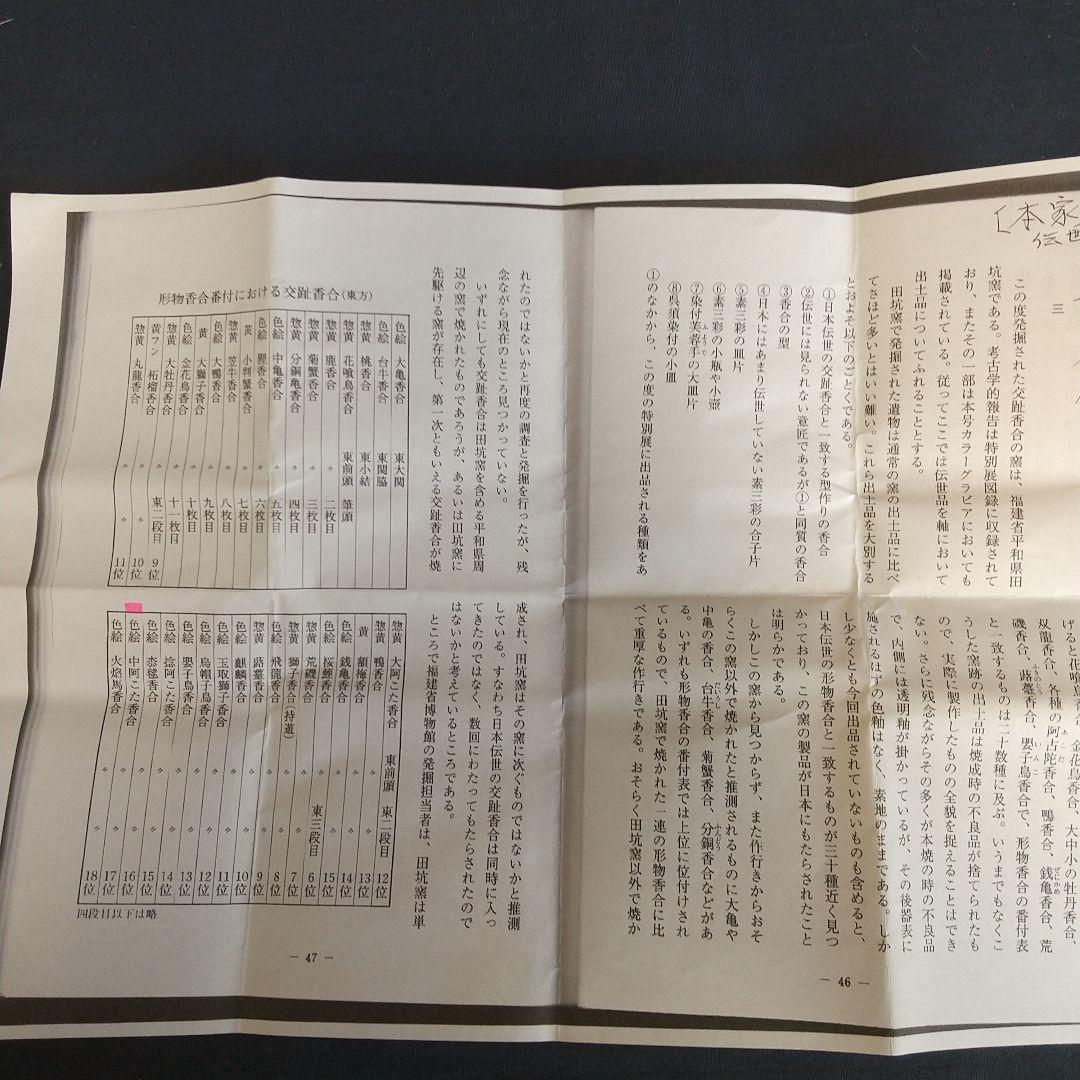 〔本家
伝世
三
この度発掘された交趾香合の窯は、福建省平和県田
坑窯である。考古学的報告は特別展図録に収録されて
おり、またその一部は本号カラーグラビアにおいても
掲載されている。従ってここでは伝世品を軸において
出土品についてふれることとする。
田坑窯で発掘された遺物は通常の窯の出土品に比べ
てさほど多いとはいい難い。これら出土品を大別する
とおよそ以下のごとくである。
①日本伝世の交趾香合と一致する型作りの香合
②伝世には見られない意匠であるが①と同質の香合
③香合の型
④日本にはあまり伝世していない素三彩の合子片
⑤素三彩の皿片
⑥素三彩の小瓶や小壺
⑦染付芙蓉手の大皿片
⑧呉須染付の小皿
①のなかから、この度の特別展に出品される種類をあ
げると花喰鳥香合、金花鳥香合、大中小の牡丹香合、
龍香合、各種の阿古陀香合、鴨香合、銭亀香合、荒
磯香合、蕗薹香合、嬰子鳥香合で、形物香合の番付表
と一致するものは二十数種に及ぶ。いうまでもなくこ
うした窯跡の出土品は焼成時の不良品が捨てられたも
ので、実際に製作したものの全貌を捉えることはでき
ない。さらに残念ながらその多くが本焼の時の不良品
で、内側には透明釉が掛かっているが、その後器表に
施されるはずの色釉はなく、素地のままである。しか
し少なくとも今回出品されていないものも含めると、
日本伝世の形物香合と一致するものが三十種近く見つ
かっており、この窯の製品が日本にもたらされたこと
は明らかである。
しかしこの窯から見つからず、また作行きからおそ
らくこの窯以外で焼かれたと推測されるものに大亀や
中亀の香合、台牛香合、菊蟹香合、分銅香合などがあ
る。いずれも形物香合の番付表では上位に位付けされ
ているもので、田坑窯で焼かれた一連の形物香合に比
べて重厚な作行きである。おそらく田坑窯以外で焼か
― 46 ―
れたのではないかと再度の調査と発掘を行ったが、残
念ながら現在のところ見つかっていない。
いずれにしても交趾香合は田坑窯を含める平和県周
辺の窯で焼かれたものであろうが、あるいは田坑窯に
先駆ける窯が存在し、第一次ともいえる交趾香合が焼
成され、田坑窯はその窯に次ぐものではないかと推測
している。すなわち日本伝世の交趾香合は同時に入っ
てきたのではなく、数回にわたってもたらされたので
はないかと考えているところである。
ところで福建省博物館の発掘担当者は、田坑窯は単
形物香合番付における交趾香合（東方）
色絵 大亀香合 東大関
色絵 台牛香合 東関脇
惣黄 桃香合 東小結
惣黄 花喰鳥香合 東前頭 筆頭
惣黄 鹿香合 〃 二枚目
惣黄 菊蟹香合 〃 三枚目
惣黄 分銅亀香合 〃 四枚目
色絵 中亀香合 〃 五枚目
色絵 狸香合 〃 六枚目
黄 小判蟹香合 〃 七枚目
惣黄 笠牛香合 〃 八枚目
黄 大獅子香合 〃 九枚目
色絵 金花鳥香合 〃 十枚目
惣黄 大牡丹香合 〃 十一枚目
黄フン 柘榴香合 〃 東二段目 9位
惣黄 大鴨香合 〃 〃 10位
惣黄 丸龍香合 〃 〃 11位
惣黄 大阿こだ香合 東前頭 東二段目 12位
惣黄 鴨香合 〃 〃 13位
黄 額梅香合 〃 〃 14位
色絵 銭亀香合 〃 〃 15位
色絵 桜狸香合 〃 東三段目 6位
惣黄 荒磯香合 〃 〃 7位
惣黄 獅子香合（持遊） 〃 〃 8位
色絵 飛龍香合 〃 〃 9位
惣黄 蕗薹香合 〃 〃 10位
色絵 麒麟香合 〃 〃 11位
色絵 玉取獅子香合 〃 〃 12位
色絵 烏帽子鳥香合 〃 〃 13位
色絵 嬰子鳥香合 〃 〃 14位
色絵 捻阿こた香合 〃 〃 15位
色絵 毬香合 〃 〃 16位
色絵 中阿こた香合 〃 〃 17位
色絵 火焔馬香合 〃 〃 18位
四段目以下は略
― 47 ―